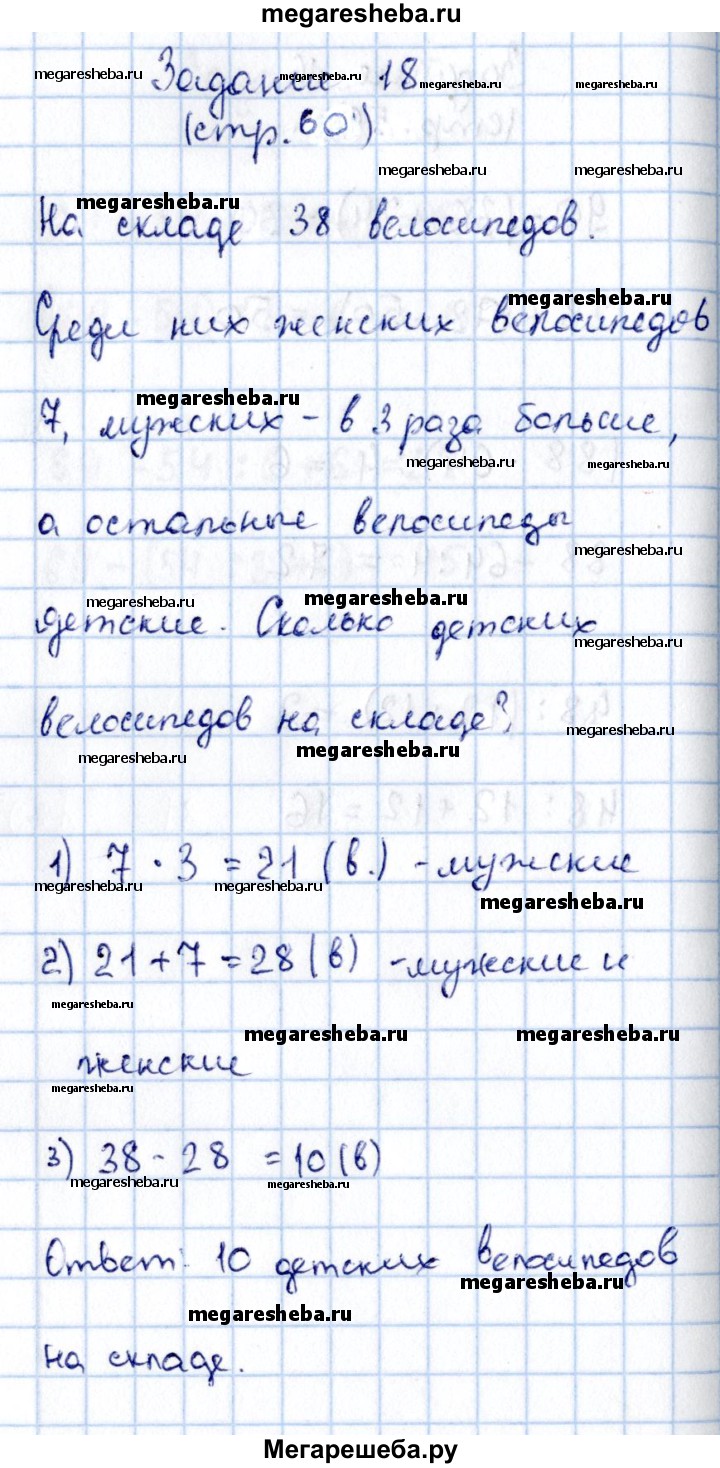 megaresheba.ru
megaresheba.ru Задание 18 megaresheba.ru megaresheba.ru
(стр. 60)
megaresheba.ru megaresheba.ru
megaresheba.ru
На складе 38 велосипедов.
megaresheba.ru
Среди них женских велосипедов
megaresheba.ru
7, мужских - в 3 раза больше,
megaresheba.ru megaresheba.ru
а остальные велосипеды
megaresheba.ru
megaresheba.ru megaresheba.ru
детские. Сколько детских
megaresheba.ru
велосипедов на складе?
megaresheba.ru megaresheba.ru megaresheba.ru
1) 7 · 3 = 21 (в.) - мужские
megaresheba.ru megaresheba.ru megaresheba.ru
2) 21 + 7 = 28 (в) - мужские и
megaresheba.ru
megaresheba.ru megaresheba.ru
женские
megaresheba.ru
3) 38 - 28 = 10 (в)
megaresheba.ru megaresheba.ru
Ответ: 10 детских велосипедов
megaresheba.ru
megaresheba.ru
на складе.
Мегарешеба.ру